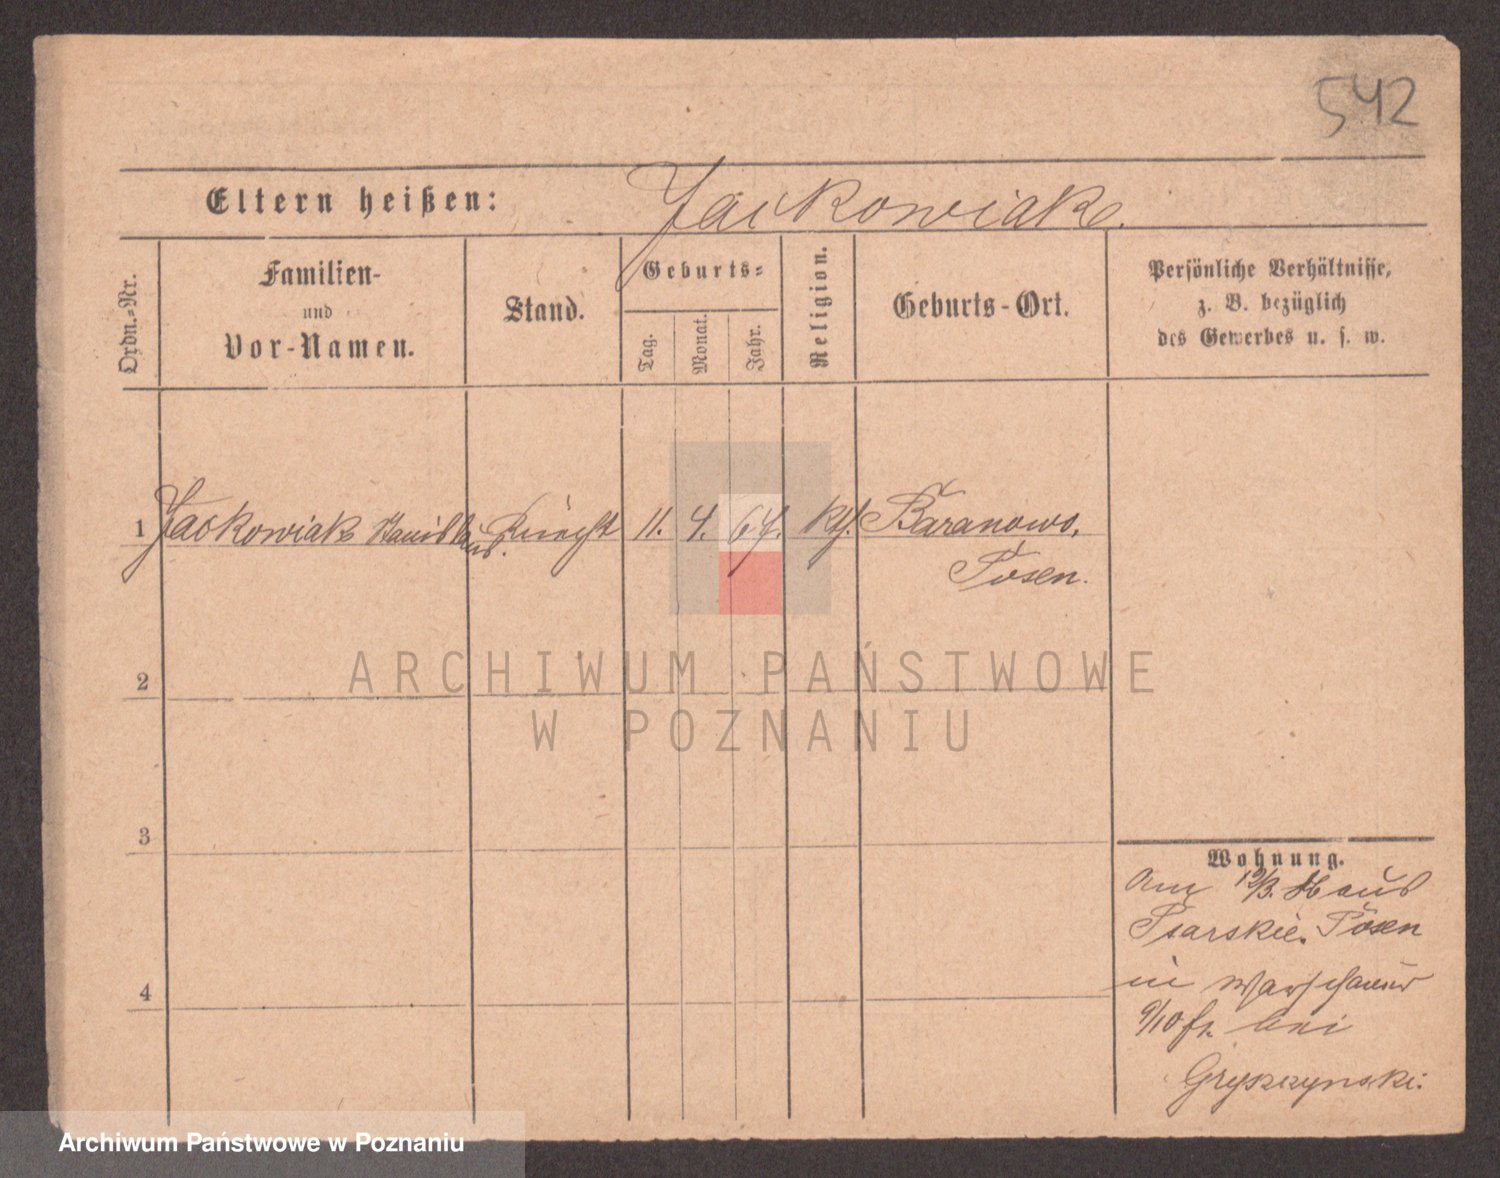 542
Eltern heißen: Jackowiak.
Ordn.-Nr.
Familien-
und
Vor-Namen.
Stand.
Geburts-
Tag.
Monat.
Jahr.
Religion.
Geburts-Ort.
Persönliche Verhältnisse,
z. B. bezüglich
des Gewerbes u. s. w.
1 Jackowiak Stanislaus. Knecht 11. 4. 64. kth. Baranowo,
Posen.
ARCHIWUM PAŃSTWOWE
W POZNANIU
2
3
4
Wohnung.
Psarskie. Posen
in Warschauer
9/10 fr. bei
Gryszczynski.
Archiwum Państwowe w Poznaniu